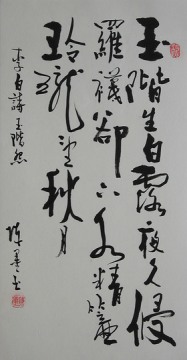 玉階生白露夜久侵
羅襪卻下水精簾
玲瓏望秋月
李白詩玉階怨